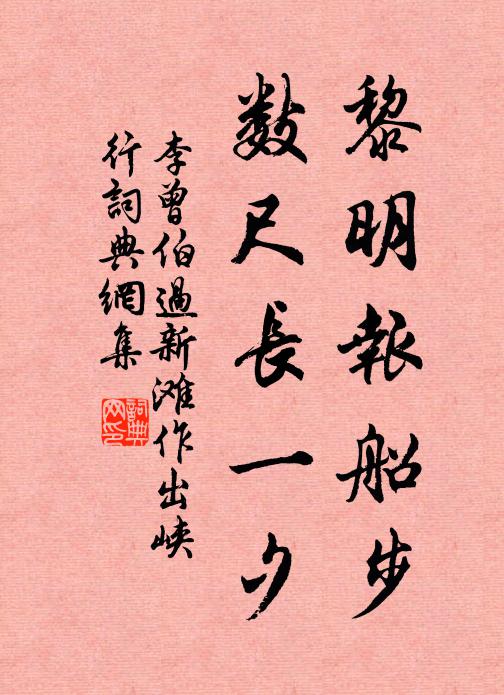 黎明報船步
數尺長一夕
李曾伯過新滩作出峽
行詞典網集
詞典
网印